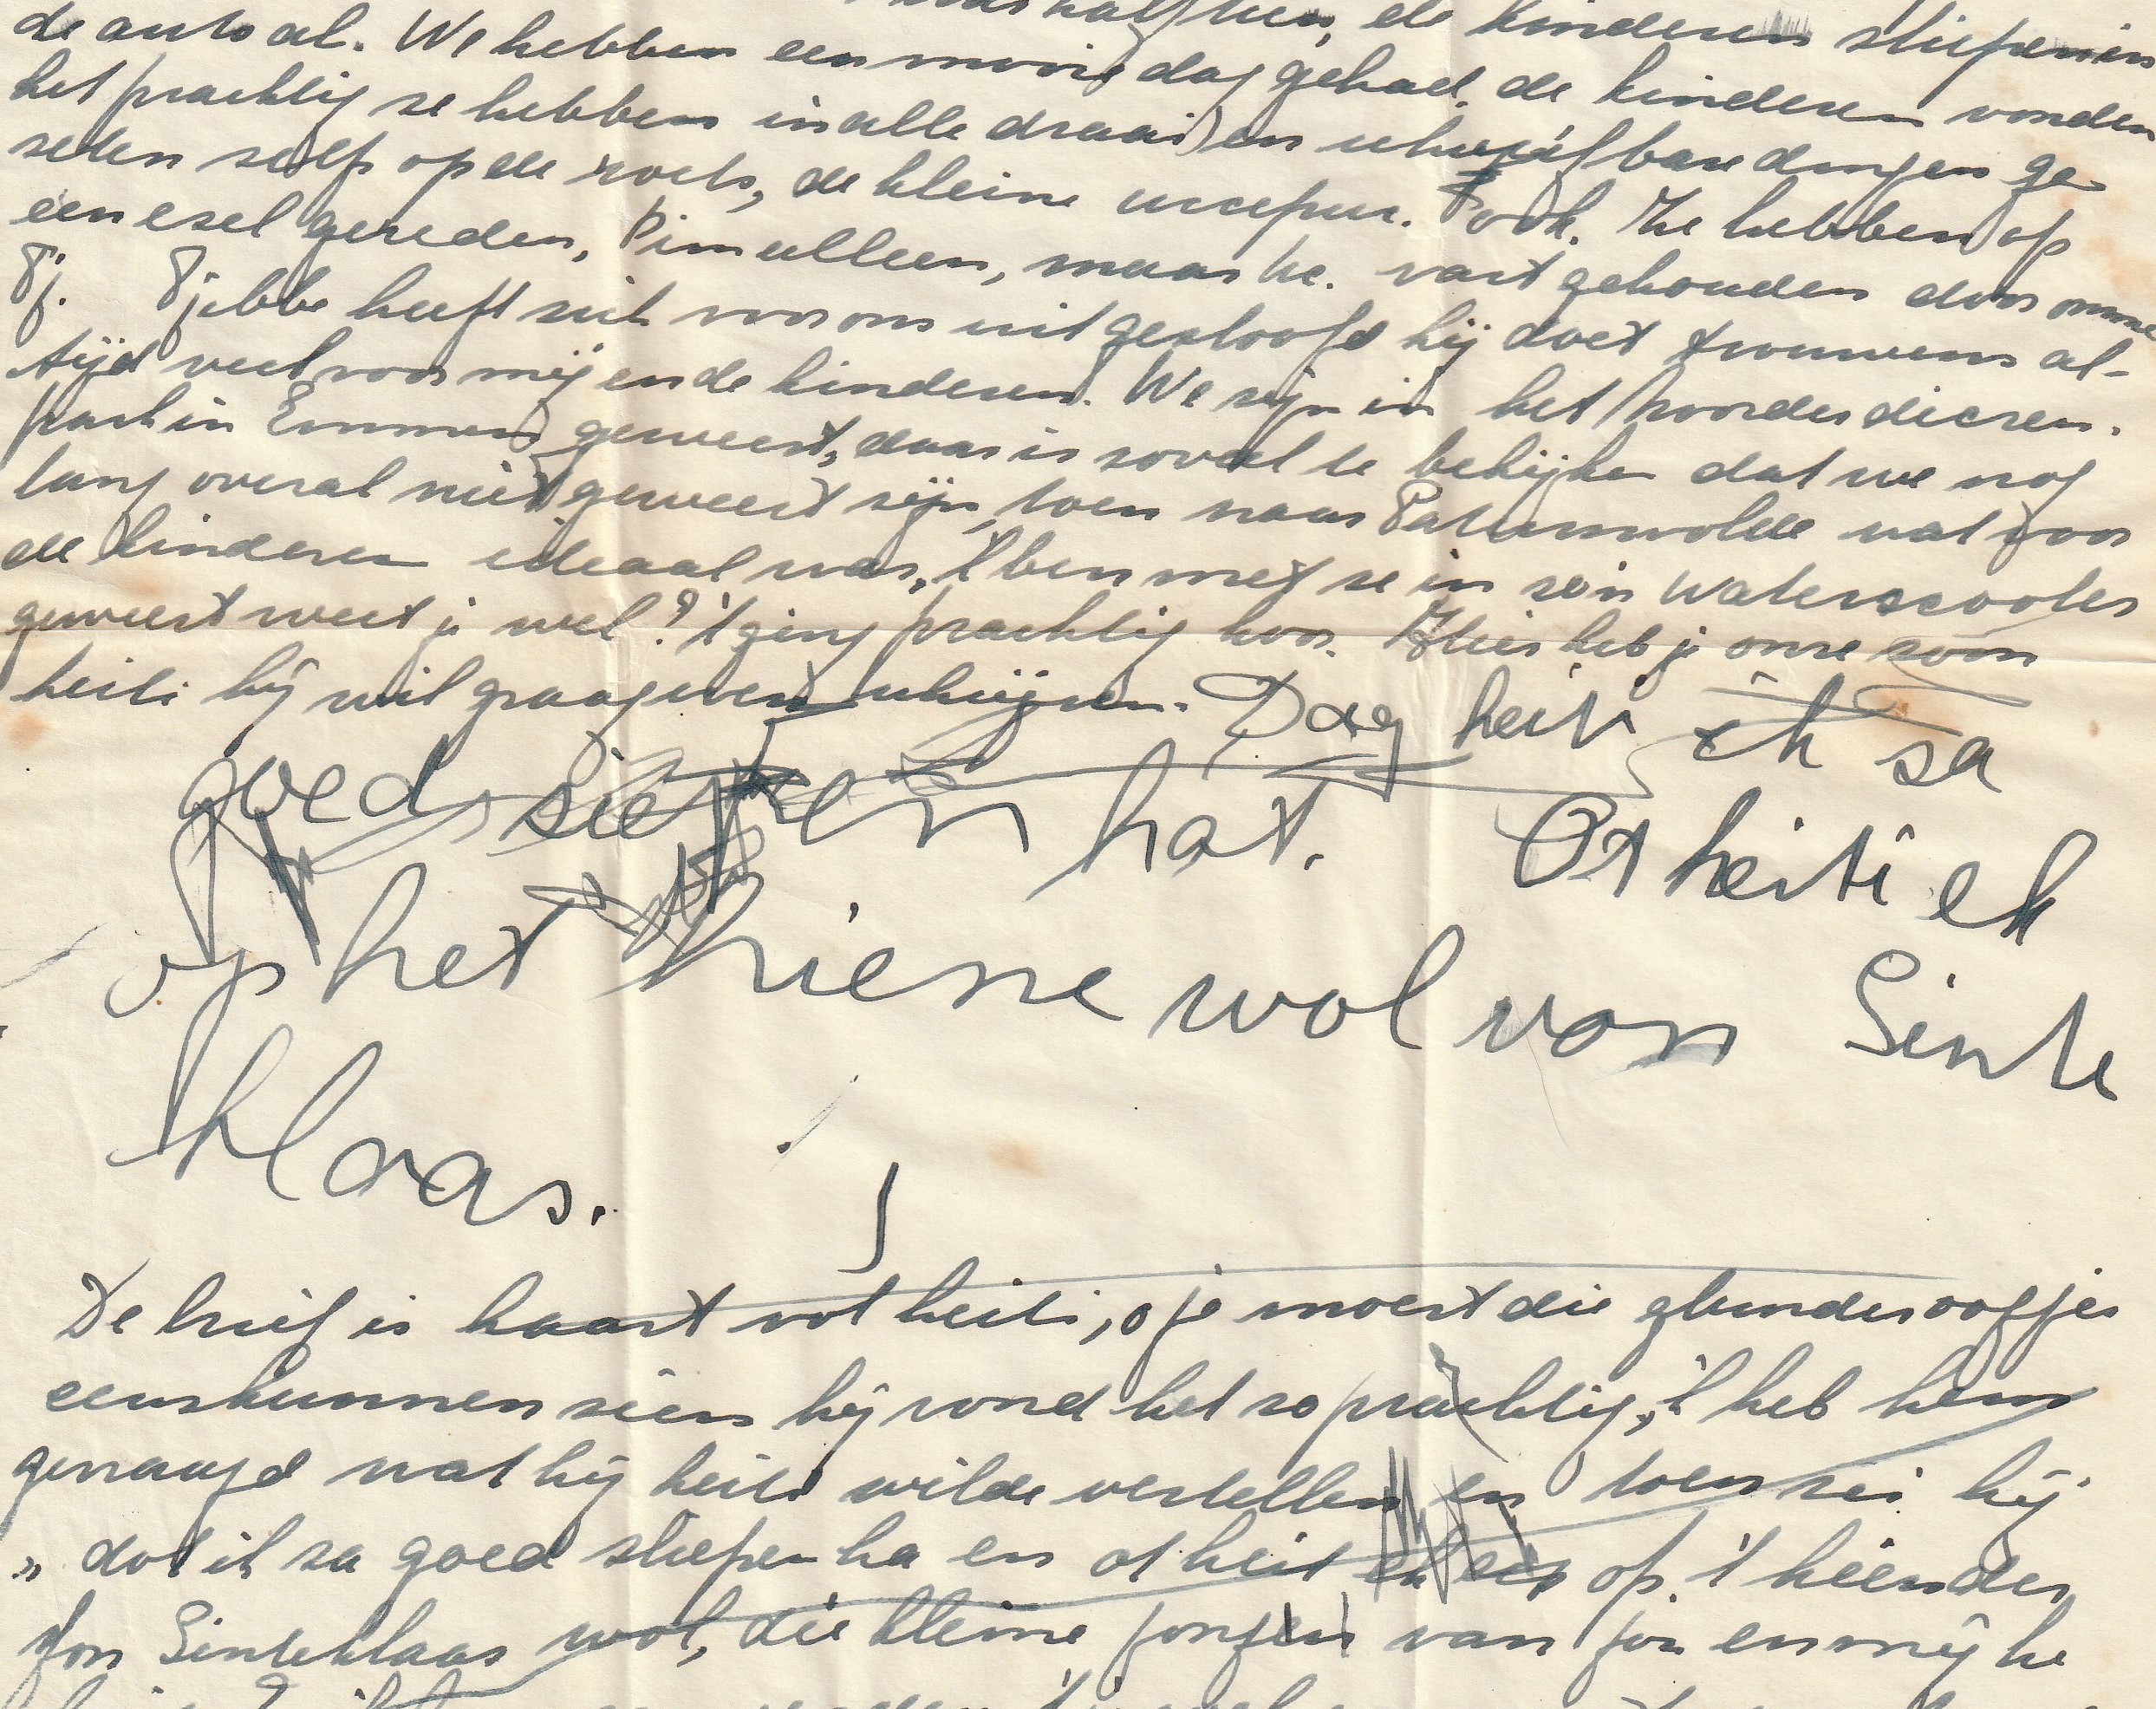 was half tien, de kinderen sliepen in
de auto al. We hebben een mooie dag gehad, de kinderen vonden
het prachtig ze hebben in alle draai en schuifbare dingen ge-
zeten zelf op de roets, de kleine ook. Ze hebben op
een ezel gereden, Pim alleen, maar he. vast gehouden door omme
Tj. Tjebbe heeft zich voor ons uitgesloofd hij doet trouwens al-
tijd veel voor mij en de kinderen. We zijn in het Noorder dieren.
park in Emmen geweest, daar is zoveel te bekijken dat we nog
lang overal niet geweest zijn, toen naar Paterswolde wat voor
de kinderen ideaal was, 'k ben met ze in zo'n waterscooter
geweest weet je wel? 't ging prachtig hoor. Hier heb je onze zoon
heiti hij wil graag even schrijven. Dag heit ik sa
goed sliepen hat. Ot heiti ek
op het hiene wol von Sinte
Klaas.
De brief is haast vol heiti, o je moest die glunder oogjes
eens kunnen zien hij vond het zo prachtig, 'k heb hem
gevraagd wat hij heiti wilde vertellen en toen zei hij
„ dat ik sa goed sliepen ha en ot heit op 't hiender
fon Sinteklaas wol, die kleine jongen van jou en mij he